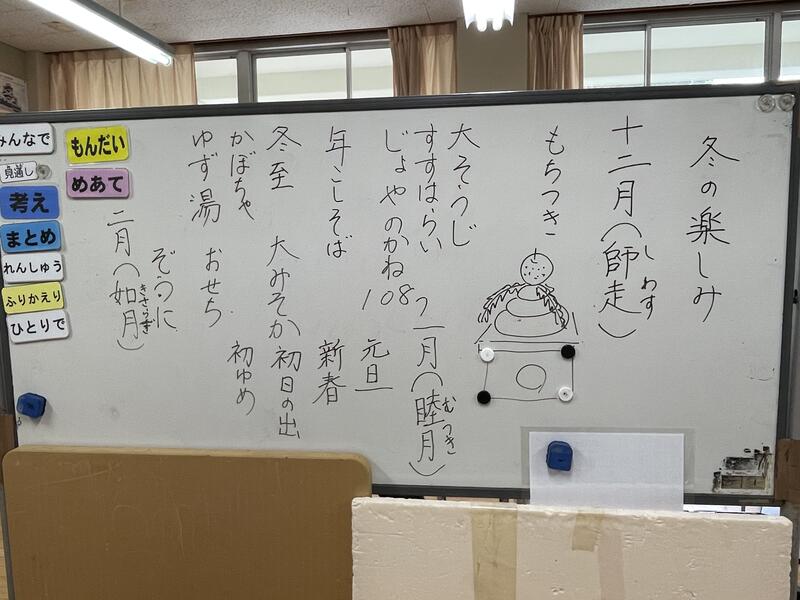 冬の楽しみ
十二月(師走)
しわす
もちつき
大そうじ
すすはらい
じょやのかね108つ
年こしそば
冬至 大みそか
かぼちゃ
ゆず湯
一月(睦月)
むつき
元旦
新春
初日の出
初ゆめ
おせち
ぞうに
二月(如月)
きさらぎ
もんだい
めあて
みんなで
見通し
考え
まとめ
れんしゅう
ふりかえり
ひとりで